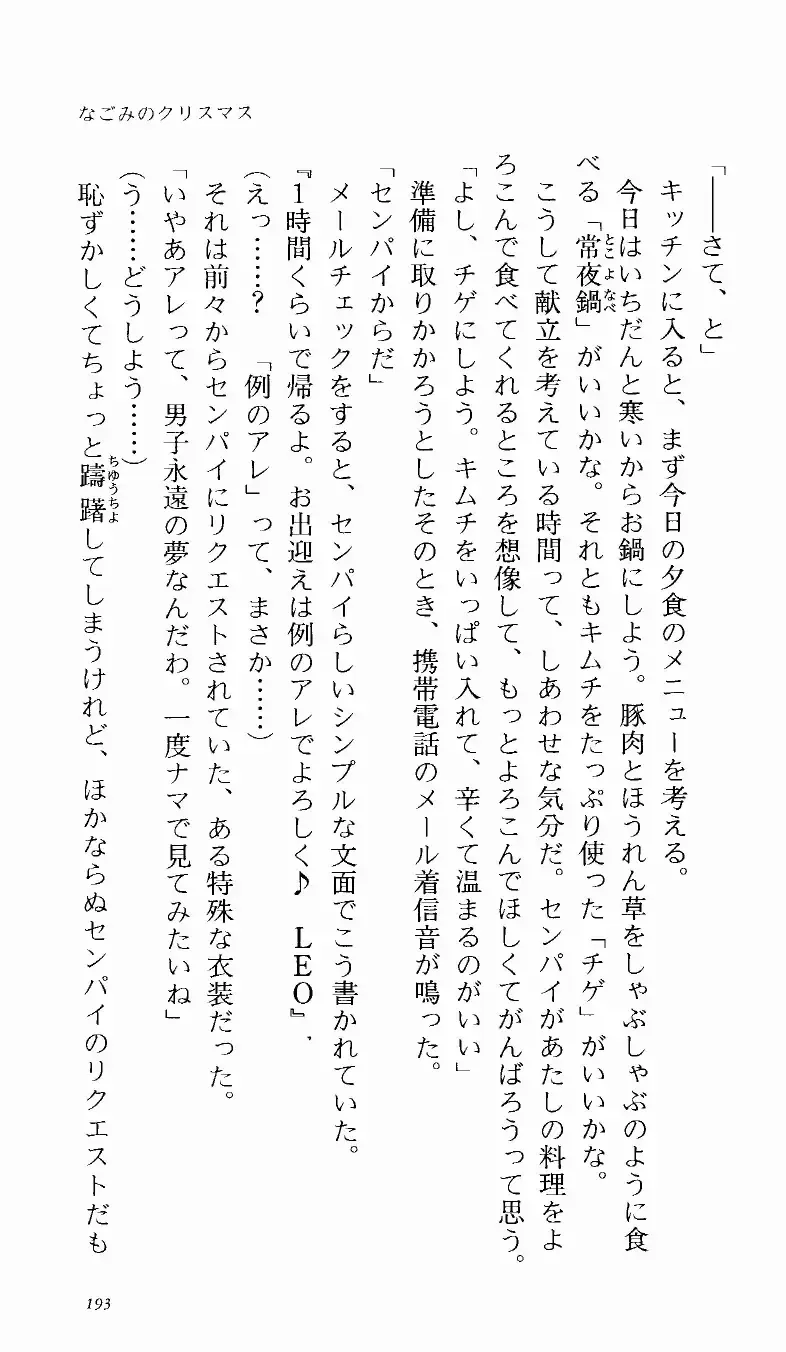 なごみのクリスマス
「――さて、と」
　キッチンに入ると、まず今日の夕食のメニューを考える。
　今日はいちだんと寒いからお鍋にしよう。豚肉とほうれん草をしゃぶしゃぶのように食
べる「常夜鍋」がいいかな。それともキムチをたっぷり使った「チゲ」がいいかな。
とこよなべ
　こうして献立を考えている時間って、しあわせな気分だ。センパイがあたしの料理をよ
ろこんで食べてくれるところを想像して、もっとよろこんでほしくてがんばろうって思う。
「よし、チゲにしよう。キムチをいっぱい入れて、辛くて温まるのがいい」
　準備に取りかかろうとしたそのとき、携帯電話のメール着信音が鳴った。
「センパイからだ」
　メールチェックをすると、センパイらしいシンプルな文面でこう書かれていた。
『1時間くらいで帰るよ。お出迎えは例のアレでよろしく♪　LEO』
（えっ……？　「例のアレ」って、まさか……）
　それは前々からセンパイにリクエストされていた、ある特殊な衣装だった。
「いやあアレって、男子永遠の夢なんだわ。一度ナマで見てみたいね」
（う……どうしよう……）
　恥ずかしくてちょっと躊躇してしまうけれど、ほかならぬセンパイのリクエストだも
ちゅうちょ
193